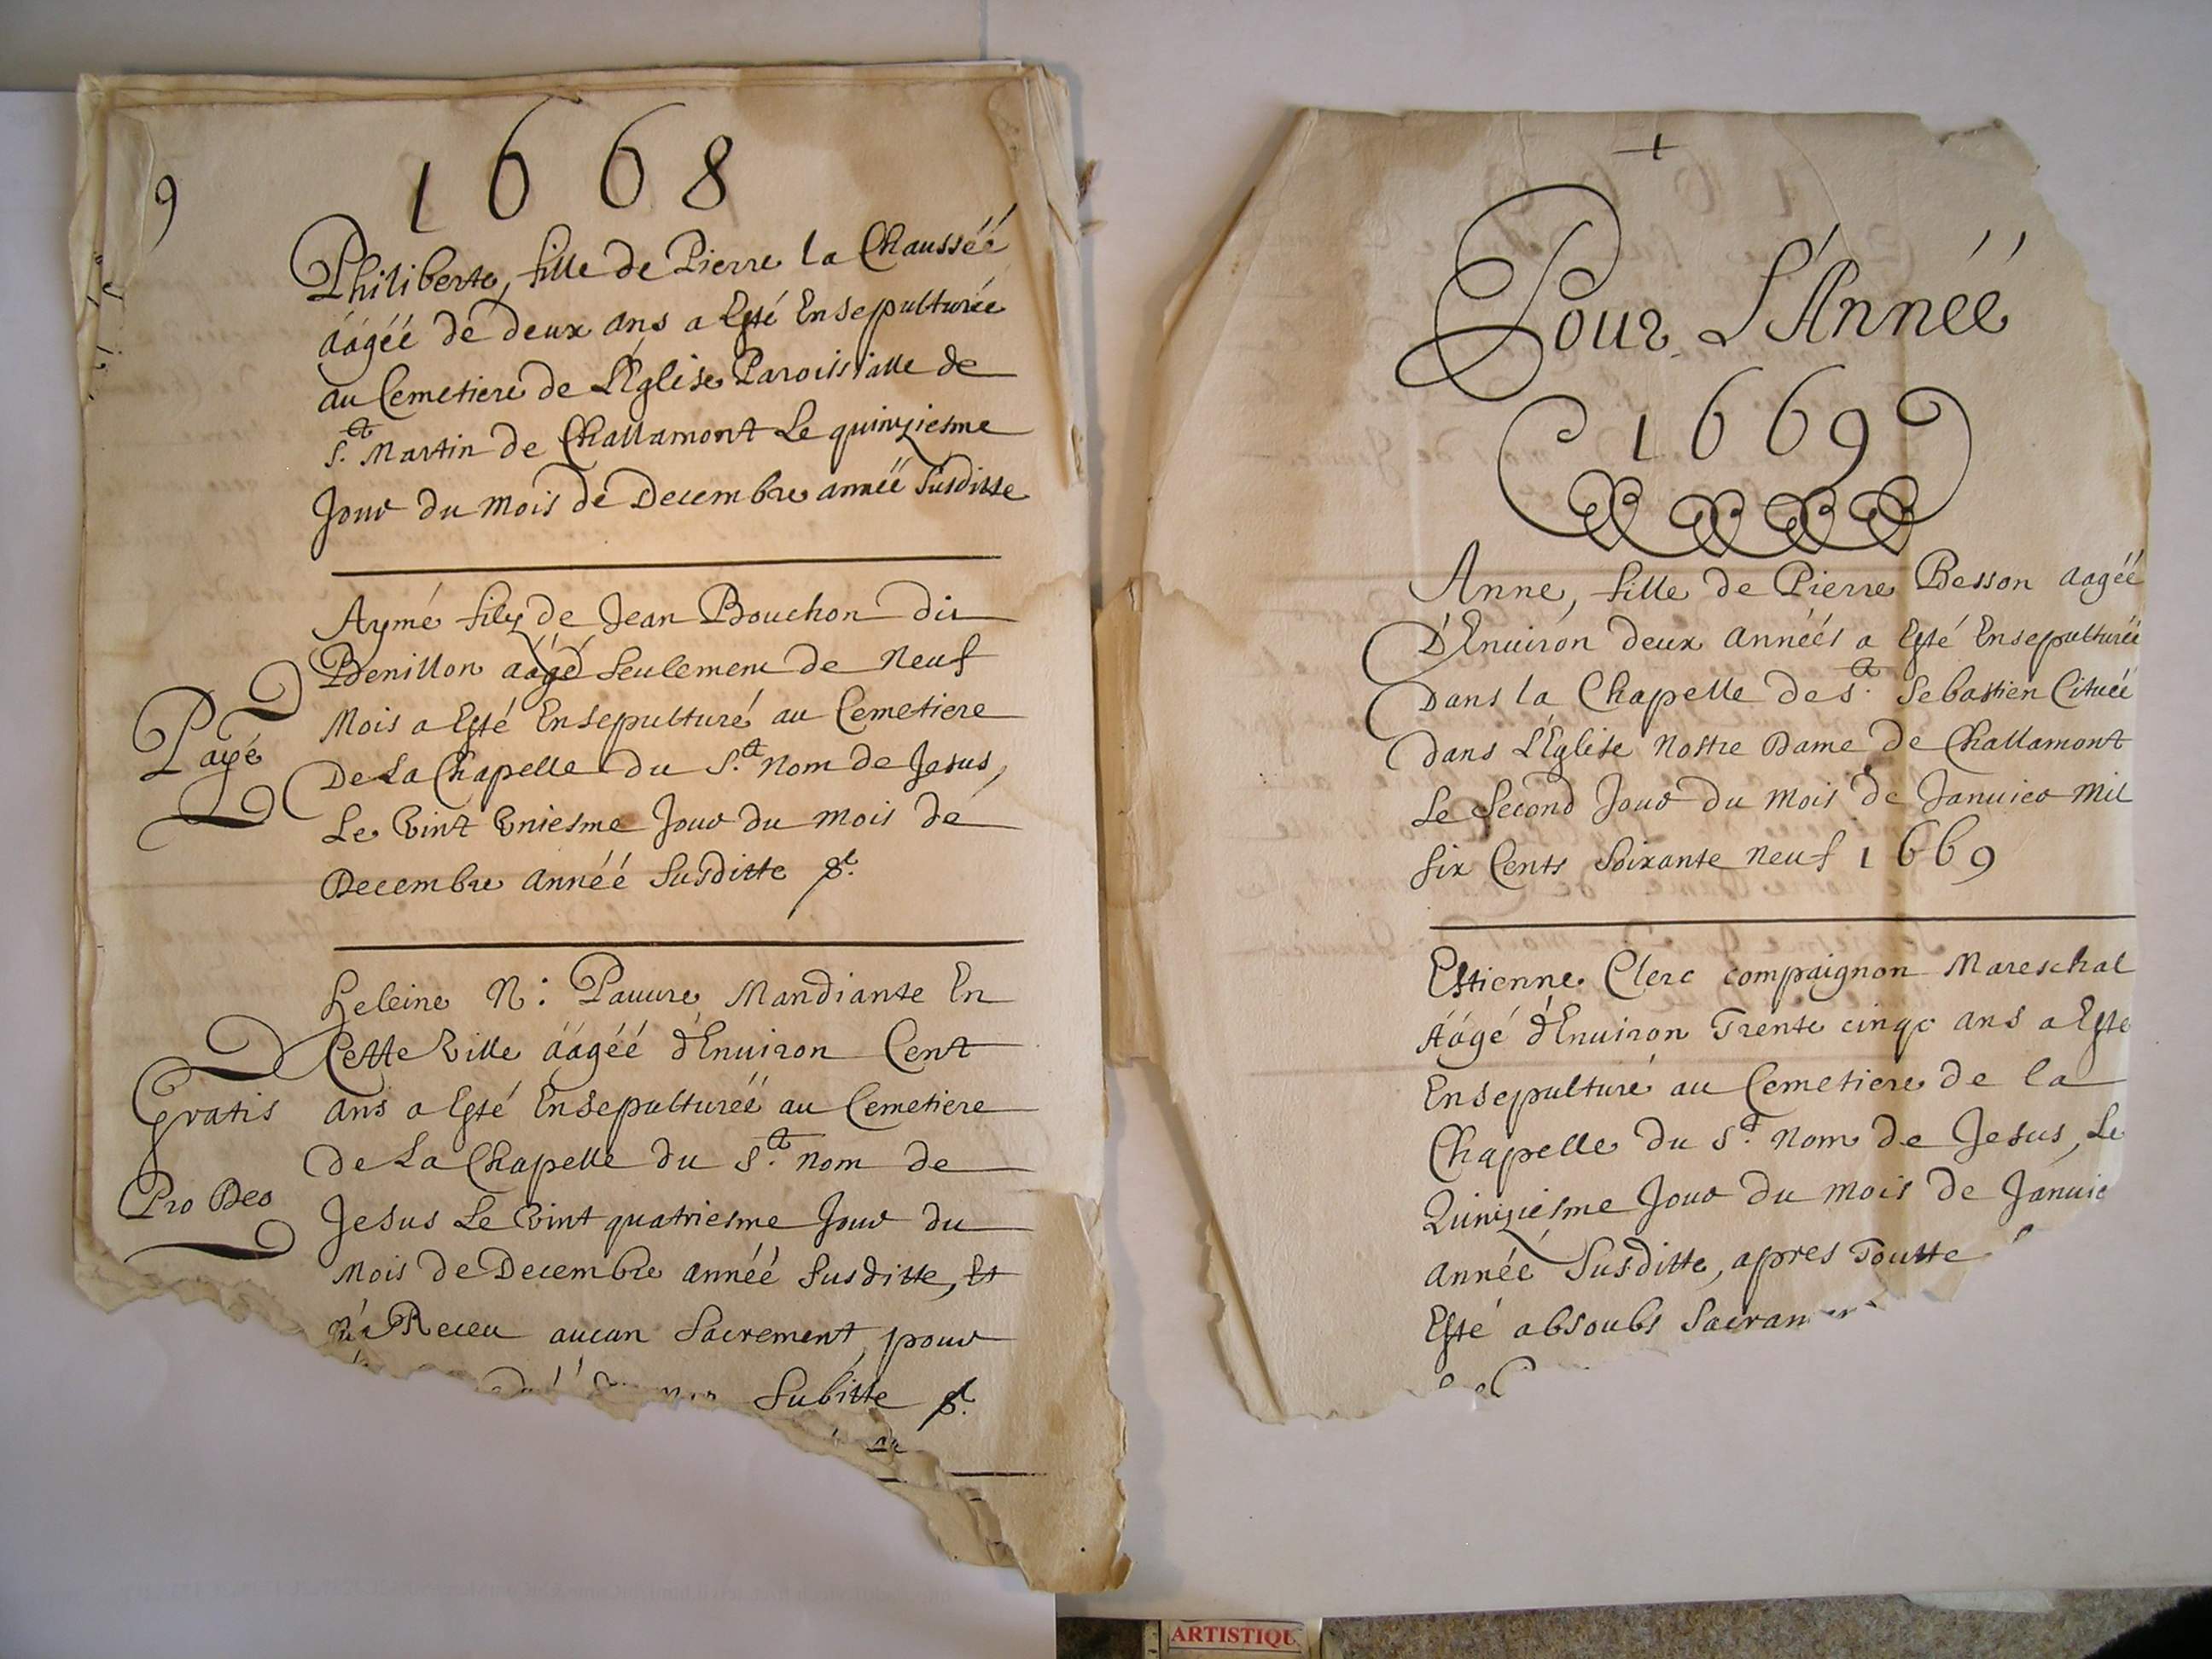 9
1668
Philiberte, fille de Pierre la Chausséé
áágéé de deux ans a Esté Ensepulturéé
au Cemetiere de L'Église Paroissialle de
St. Martin de Challamont Le quinziesme
Jour du mois de Decembre annéé susditte
Aymé fils de Jean Bouchon dit
Benillon aagé seulement de neuf
Mois a Esté Ensepulturé au Cemetiere
De La Chapelle du St. nom de Jesus,
Le vint vniesme Jour du mois de
Decembre annéé susditte
Payé
Heleine N: Pauure Mandiante En
Cette ville áágéé d'Enuiron Cent
ans a Esté Ensepulturéé au Cemetiere
de La Chapelle du St. nom de
Jesus Le vint quatriesme Jour du
Mois de Decembre annéé susditte, Et
n'a Receu aucun Sacrement, pour
Subitte
Gratis
Pro Deo
Pour L'Annéé
1669
Anne, fille de Pierre Besson aagéé
D'Enuiron deux annéés a Esté Ensepulturéé
Dans la Chapelle de St. Sebastien Cituéé
dans L'Église Nostre Dame de Challamont
Le Second Jour du mois de Januier mil
six Cents soixante neuf 1669
Estienne Clerc compaignon Mareschal
Aágé d'Enuiron Trente cinqc ans a Esté
Ensepulturé au Cemetiere de la
Chapelle du St. nom de Jesus, Le
Quinziesme Jour du mois de Januie
annéé susditte, apres Toutte
Esté absoubs Sacram
ARTISTIQU